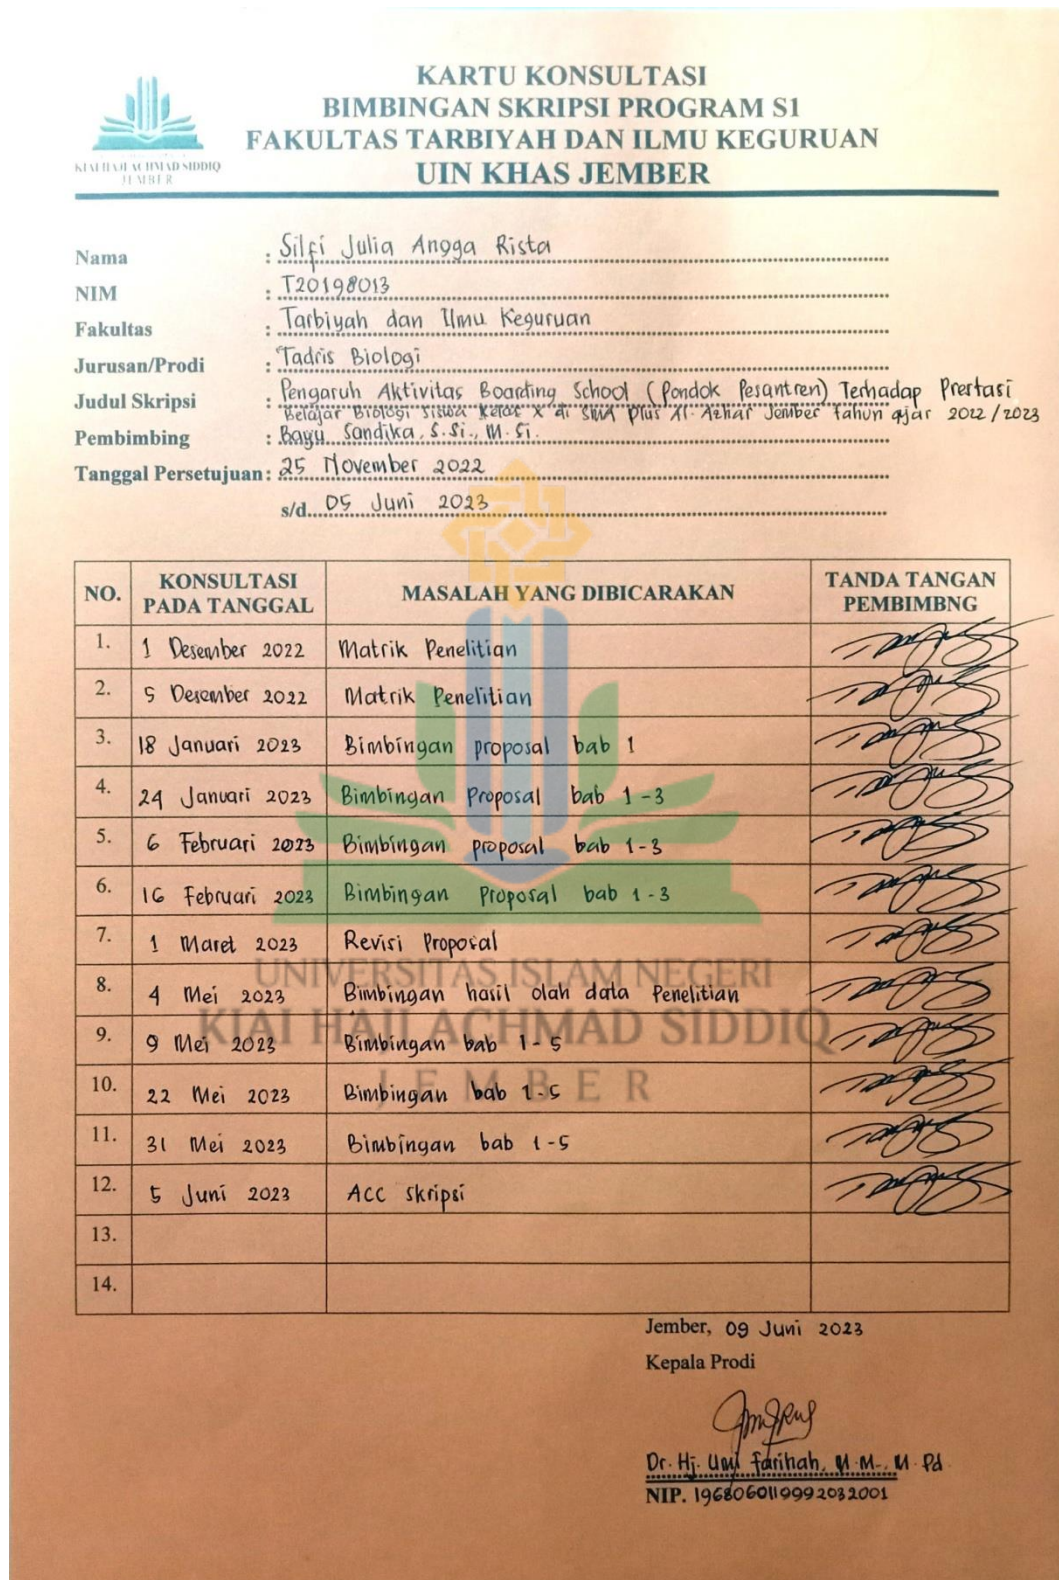 KIAI HAJI ACHMAD SIDDIQ
JEMBER
KARTU KONSULTASI
BIMBINGAN SKRIPSI PROGRAM S1
FAKULTAS TARBIYAH DAN ILMU KEGURUAN
UIN KHAS JEMBER
Nama : Silfi Julia Angga Rista
NIM : T20198013
Fakultas : Tarbiyah dan Ilmu Keguruan
Jurusan/Prodi : Tadris Biologi
Judul Skripsi : Pengaruh Aktivitas Boarding School (Pondok Pesantren) Terhadap Prestasi
Belajar Biologi Siswa Kelas X di SMA Plus Al-Azhar Jember tahun ajar 2022/2023
Pembimbing : Bayu Sandika, S.Si., M.Si.
Tanggal Persetujuan: 25 November 2022
s/d.. 05 Juni 2023
NO. KONSULTASI PADA TANGGAL MASALAH YANG DIBICARAKAN TANDA TANGAN PEMBIMBNG
1. 1 Desember 2022 Matrik Penelitian
2. 5 Desember 2022 Matrik Penelitian
3. 18 Januari 2023 Bimbingan proposal bab 1
4. 24 Januari 2023 Bimbingan Proposal bab 1-3
5. 6 Februari 2023 Bimbingan proposal bab 1-3
6. 16 Februari 2023 Bimbingan Proposal bab 1-3
7. 1 Maret 2023 Revisi Proposal
8. 4 Mei 2023 Bimbingan hasil olah data Penelitian
9. 9 Mei 2023 Bimbingan bab 1-5
10. 22 Mei 2023 Bimbingan bab 1-5
11. 31 Mei 2023 Bimbingan bab 1-5
12. 5 Juni 2023 ACC skripsi
13.
14.
UNIVERSITAS ISLAM NEGERI
KIAI HAJI ACHMAD SIDDIQ
JEMBER
Jember, 09 Juni 2023
Kepala Prodi
Dr. Hj. Umi Farihah, M.M., M.Pd
NIP. 1968060119992032001